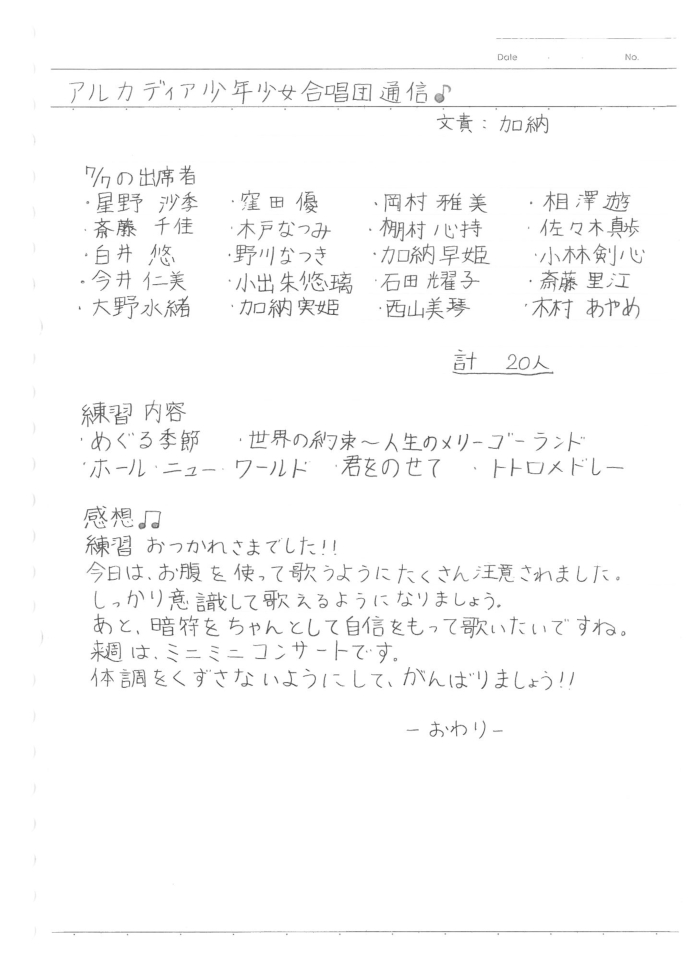 Date ・ ・ No.
アルカディア少年少女合唱団通信♪
文責：加納
7/7の出席者
・星野 沙季 ・窪田 優 ・岡村 雅美 ・相澤 遊
・斎藤 千佳 ・木戸なつみ ・棚村心持 ・佐々木真歩
・白井 悠 ・野川なつき ・加納早姫 ・小林剣心
・今井仁美 ・小出朱悠璃 ・石田耀子 ・斎藤里江
・大野水緒 ・加納実姫 ・西山美琴 ・木村あやめ
計 20人
練習内容
・めぐる季節 ・世界の約束〜人生のメリーゴーランド
・ホール・ニュー・ワールド ・君をのせて ・トトロメドレー
感想♫
練習おつかれさまでした!!
今日は、お腹を使って歌うようにたくさん注意されました。
しっかり意識して歌えるようになりましょう。
あと、暗符をちゃんとして自信をもって歌いたいですね。
来週は、ミニミニコンサートです。
体調をくずさないようにして、がんばりましょう!!
－おわり－